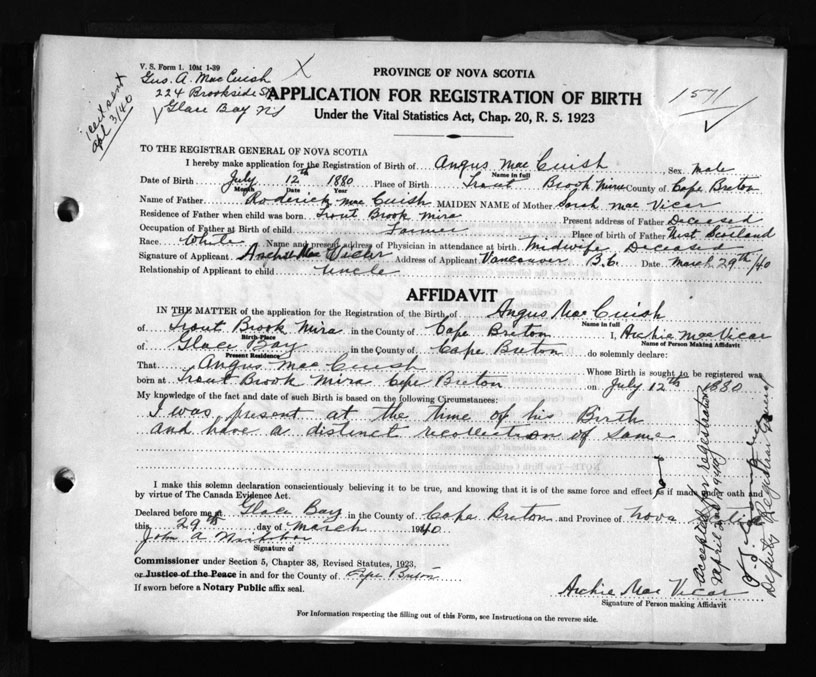 V. S. Form 1. 10M 1-39
Gus. A. MacCuish X
224 Brookside St
Glace Bay NS
apl 3/40
PROVINCE OF NOVA SCOTIA
APPLICATION FOR REGISTRATION OF BIRTH
Under the Vital Statistics Act, Chap. 20, R. S. 1923
1571
TO THE REGISTRAR GENERAL OF NOVA SCOTIA
I hereby make application for the Registration of Birth of Angus MacCuish Sex male
Name in full
Date of Birth July 12th 1880 Place of Birth Trout Brook Mira County of Cape Breton
Month Date Year
Name of Father Roderick MacCuish MAIDEN NAME of Mother Sarah MacVicar
Residence of Father when child was born Trout Brook Mira Present address of Father Deceased
Occupation of Father at Birth of child Farmer Place of birth of Father Scotland
Race White Name and present address of Physician in attendance at birth Midwife Deceased
Signature of Applicant Archie MacVicar Address of Applicant Vancouver B.C. Date March 29th/40
Relationship of Applicant to child Uncle
AFFIDAVIT
IN THE MATTER of the application for the Registration of the Birth of Angus MacCuish
Name in full
of Trout Brook Mira in the County of Cape Breton I, Archie MacVicar
Birth-Place Name of Person Making Affidavit
of Glace Bay in the County of Cape Breton do solemnly declare:
Present Residence
That Angus MacCuish Whose Birth is sought to be registered was
born at Trout Brook Mira Cape Breton on July 12th 1880
My knowledge of the fact and date of such Birth is based on the following Circumstances:
I was present at the time of his Birth
and have a distinct recollection of same
I make this solemn declaration conscientiously believing it to be true, and knowing that it is of the same force and effect as if made under oath and
by virtue of The Canada Evidence Act.
Declared before me at Glace Bay in the County of Cape Breton and Province of Nova Scotia
this 29th day of March 1940
John A
Signature of
Commissioner under Section 5, Chapter 38, Revised Statutes, 1923,
or Justice of the Peace in and for the County of Cape Breton
If sworn before a Notary Public affix seal.
Archie MacVicar
Signature of Person making Affidavit
Accepted for registration
April 1940
Deputy Registrar General
For Information respecting the filling out of this Form, see Instructions on the reverse side.